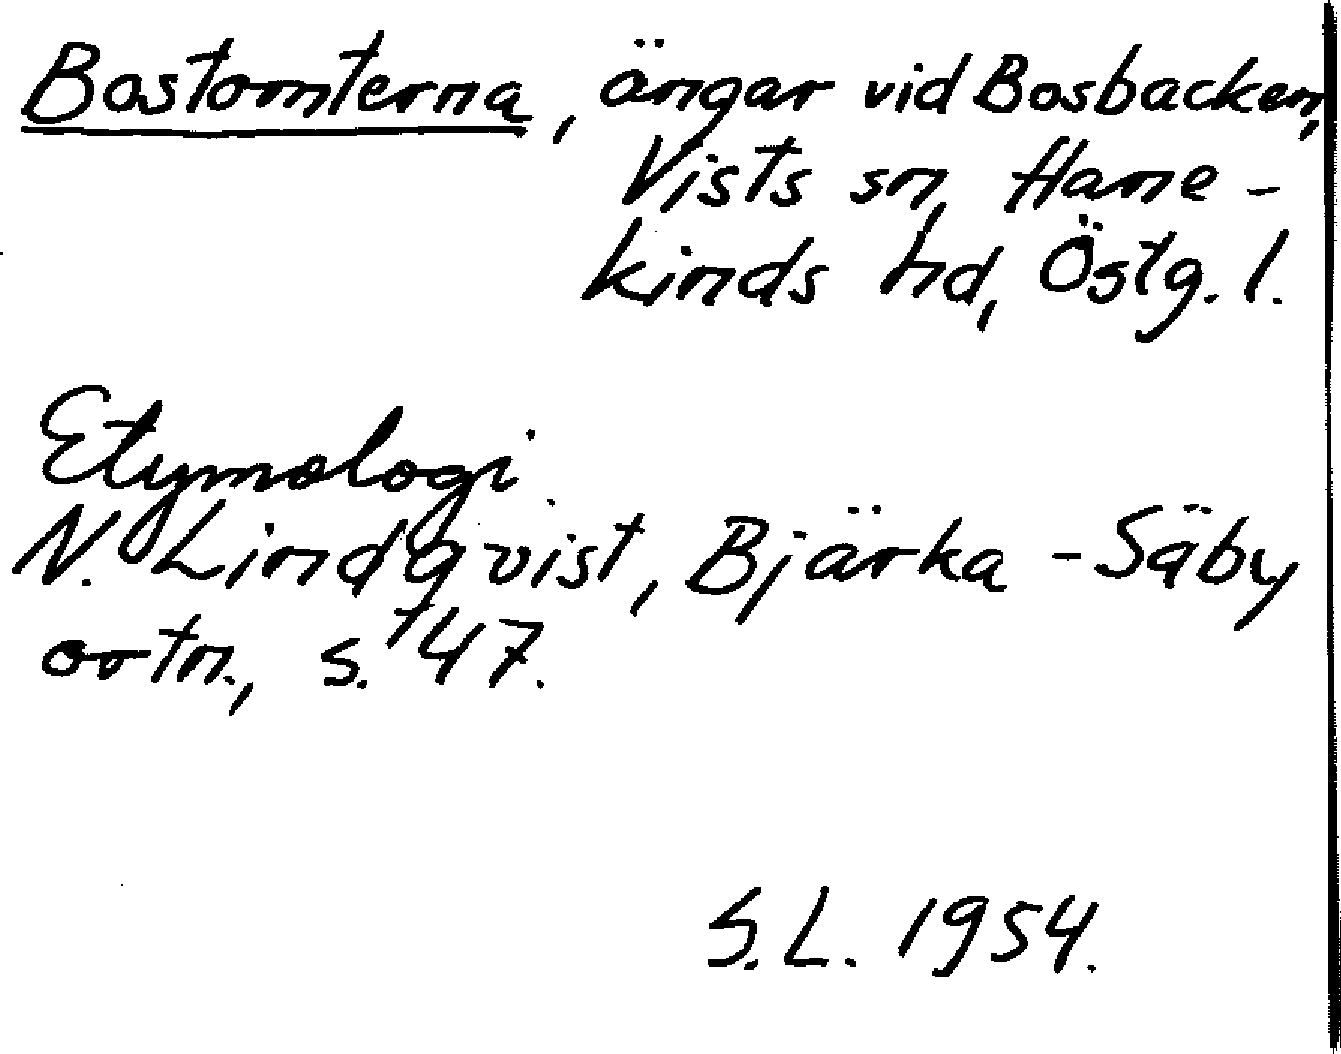 Bostomterna, ängar vid Bosbacken,
Vists sn, Hane-
kinds hd, Östg. l.
Etymologi.
N. Lindqvist, Bjärka-Säby
ortn., s. 147.
S.L. 1954.